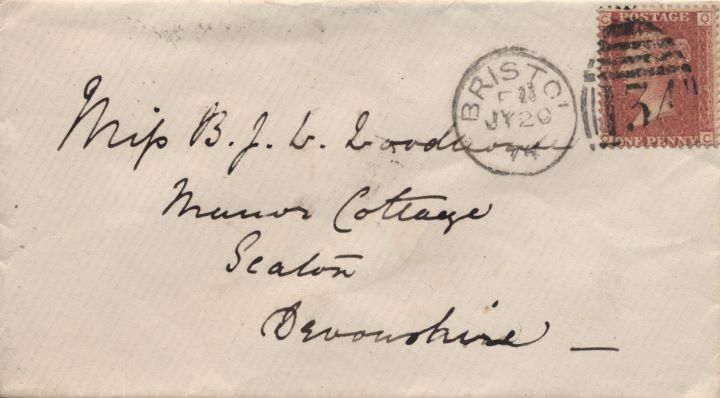 POSTAGE
C O
O C
ONE PENNY
134
BRISTOL
F 23
JY 20
74
Miss B. J. W. Woodhouse
Manor Cottage
Seaton
Devonshire